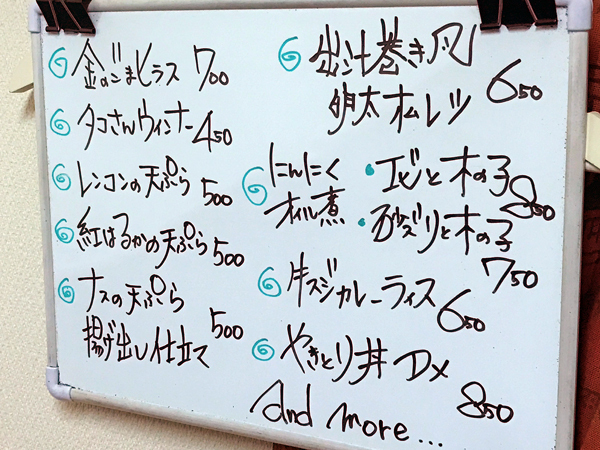 金のごまヒラス 700
タコさんウィンナー 450
レンコンの天ぷら 500
紅はるかの天ぷら 500
ナスの天ぷら
揚げ出し仕立て 500
出汁巻き風
明太オムレツ 650
にんにく
オイル煮
・エビと木の子 850
・砂ズリと木の子 750
牛スジカレーライス 650
やきとり丼 DX 850
And more...